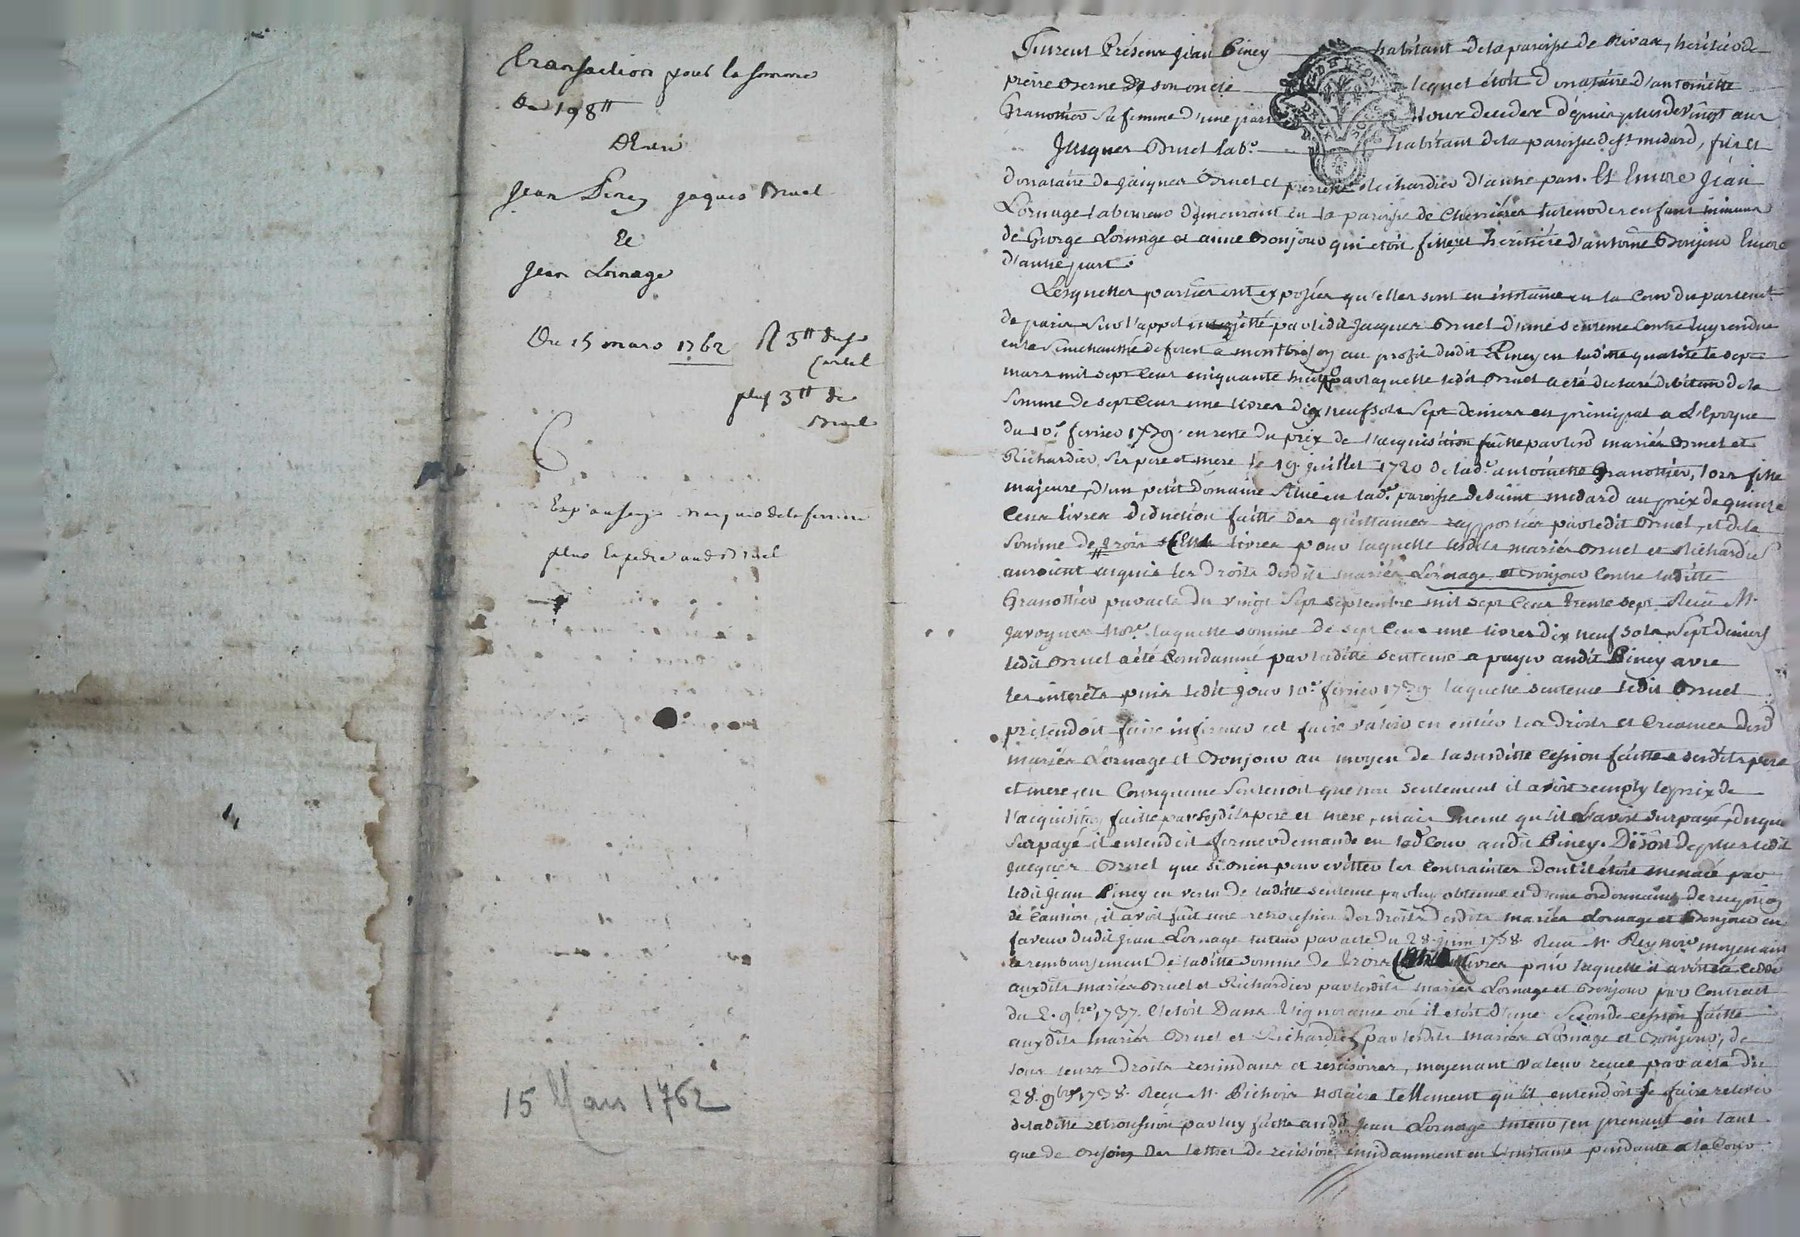 transaction pour la somme
de 198tt
Entre
Jean Piney Jaques Bruel
Et
Jean Lornage
Du 15 mars 1762 R 3tt
plus 3tt de
Bruel
15 Mars 1762
Furent Présens Jean Piney habitant de la paroisse de Rivas, heritier de
pierre son oncle lequel étoit donataire d'antoinette
Granottier sa femme d'une part Tour decedes depuis plus de vingt ans
Jacques Bruel lab.r habitant de la paroisse de st medard, fils et
donataire de Jacques Bruel et pierrette Richardier d'autre part. Et Encore Jean
Lornage laboureur demeurant en la paroisse de Chevrieres tuteur des enfans mineurs
de George Lornage et anne Bonjour qui etoit fille et heritière d'antoine Bonjour Encore
d'autre part.
Lesquelles parties ont exposées qu'elles sont en instance en la Cour du parlem.t
de paris sur l'appel interjetté par ledit Jacques Bruel d'une sentence contre luy rendue
en la Senechaussée de forest à montbrison au profit dudit Piney en laditte qualité le sept
mars mil sept cens cinquante huit par laquelle ledit Bruel a été declaré debiteur de la
somme de sept cens une livres dix neuf sols sept deniers en principal a L'Epoque
du 10.e fevrier 1739. en reste du prix de l'acquisition faitte par lesd mariés Bruel et
Richardier ses pere et mere le 19. juillet 1720 de lad.e antoinette Granottier, lors fille
majeure, d'un petit Domaine situé en lad.e paroisse de saint medard au prix de quinze
cens livres deduction faitte des quittances rapportées par ledit Bruel, et de la
somme de trois cens livres pour laquelle lesdits mariés Bruel et Richardier
auroient acquis les droits desdits mariés Lornage et Bonjour contre laditte
Granottier par acte du vingt sept septembre mil sept cens trente sept Reçu M.
Javogues No.re laquelle somme de sept cens une livres dix neuf sols sept deniers
ledit Bruel a été condamné par laditte sentence a payer audit Piney avec
les interets puis ledit jour 10.e fevrier 1739 laquelle sentence ledit Bruel
prétendoit faire infirmer et faire valoir en entier les droits et creances desd
mariés Lornage et Bonjour au moyen de la susditte cession faitte a sesdits pere
et mere, en consequence soutenoit que non seulement il avoit remply le prix de
l'acquisition faitte par sesdits pere et mere, mais meme qu'il L'avoit surpayé, duquel
surpayé il entendoit former demande en lad Cour audit Piney. Disoit de plus ledit
Jacques Bruel que pour eviter les contraintes dont il étoit menacé par
ledit Jean Piney en vertu de laditte sentence par luy obtenue et d'une ordonnance de reception
de caution, il avoit fait une retrocession des droits desdits mariés Lornage et Bonjour en
faveur dudit Jean Lornage tuteur par acte du 28 juin 1758 Reçu M. Rey no.re moyenant
le remboursement de laditte somme de trois cens livres pour laquelle il avoit été cedé
auxdits mariés Bruel et Richardier par lesdits mariés Lornage et Bonjour par contract
du 2. 9bre 1737. C'etoit Dans L'ignorance où il etoit d'une seconde cession faitte
auxdits mariés Bruel et Richardier par lesdits mariés Lornage et Bonjour, de
tous leurs droits rescindans et rescisoires, moyenant valeur reçue par acte du
28. 9bre 1738. Reçu M. Bichois notaire tellement qu'il entendoit se faire relever
de laditte retrocession par luy faitte audit Jean Lornage tuteur, en prenant en tant
que de besoin des lettres de rescision, incidamment en L'instance pendante a la Cour